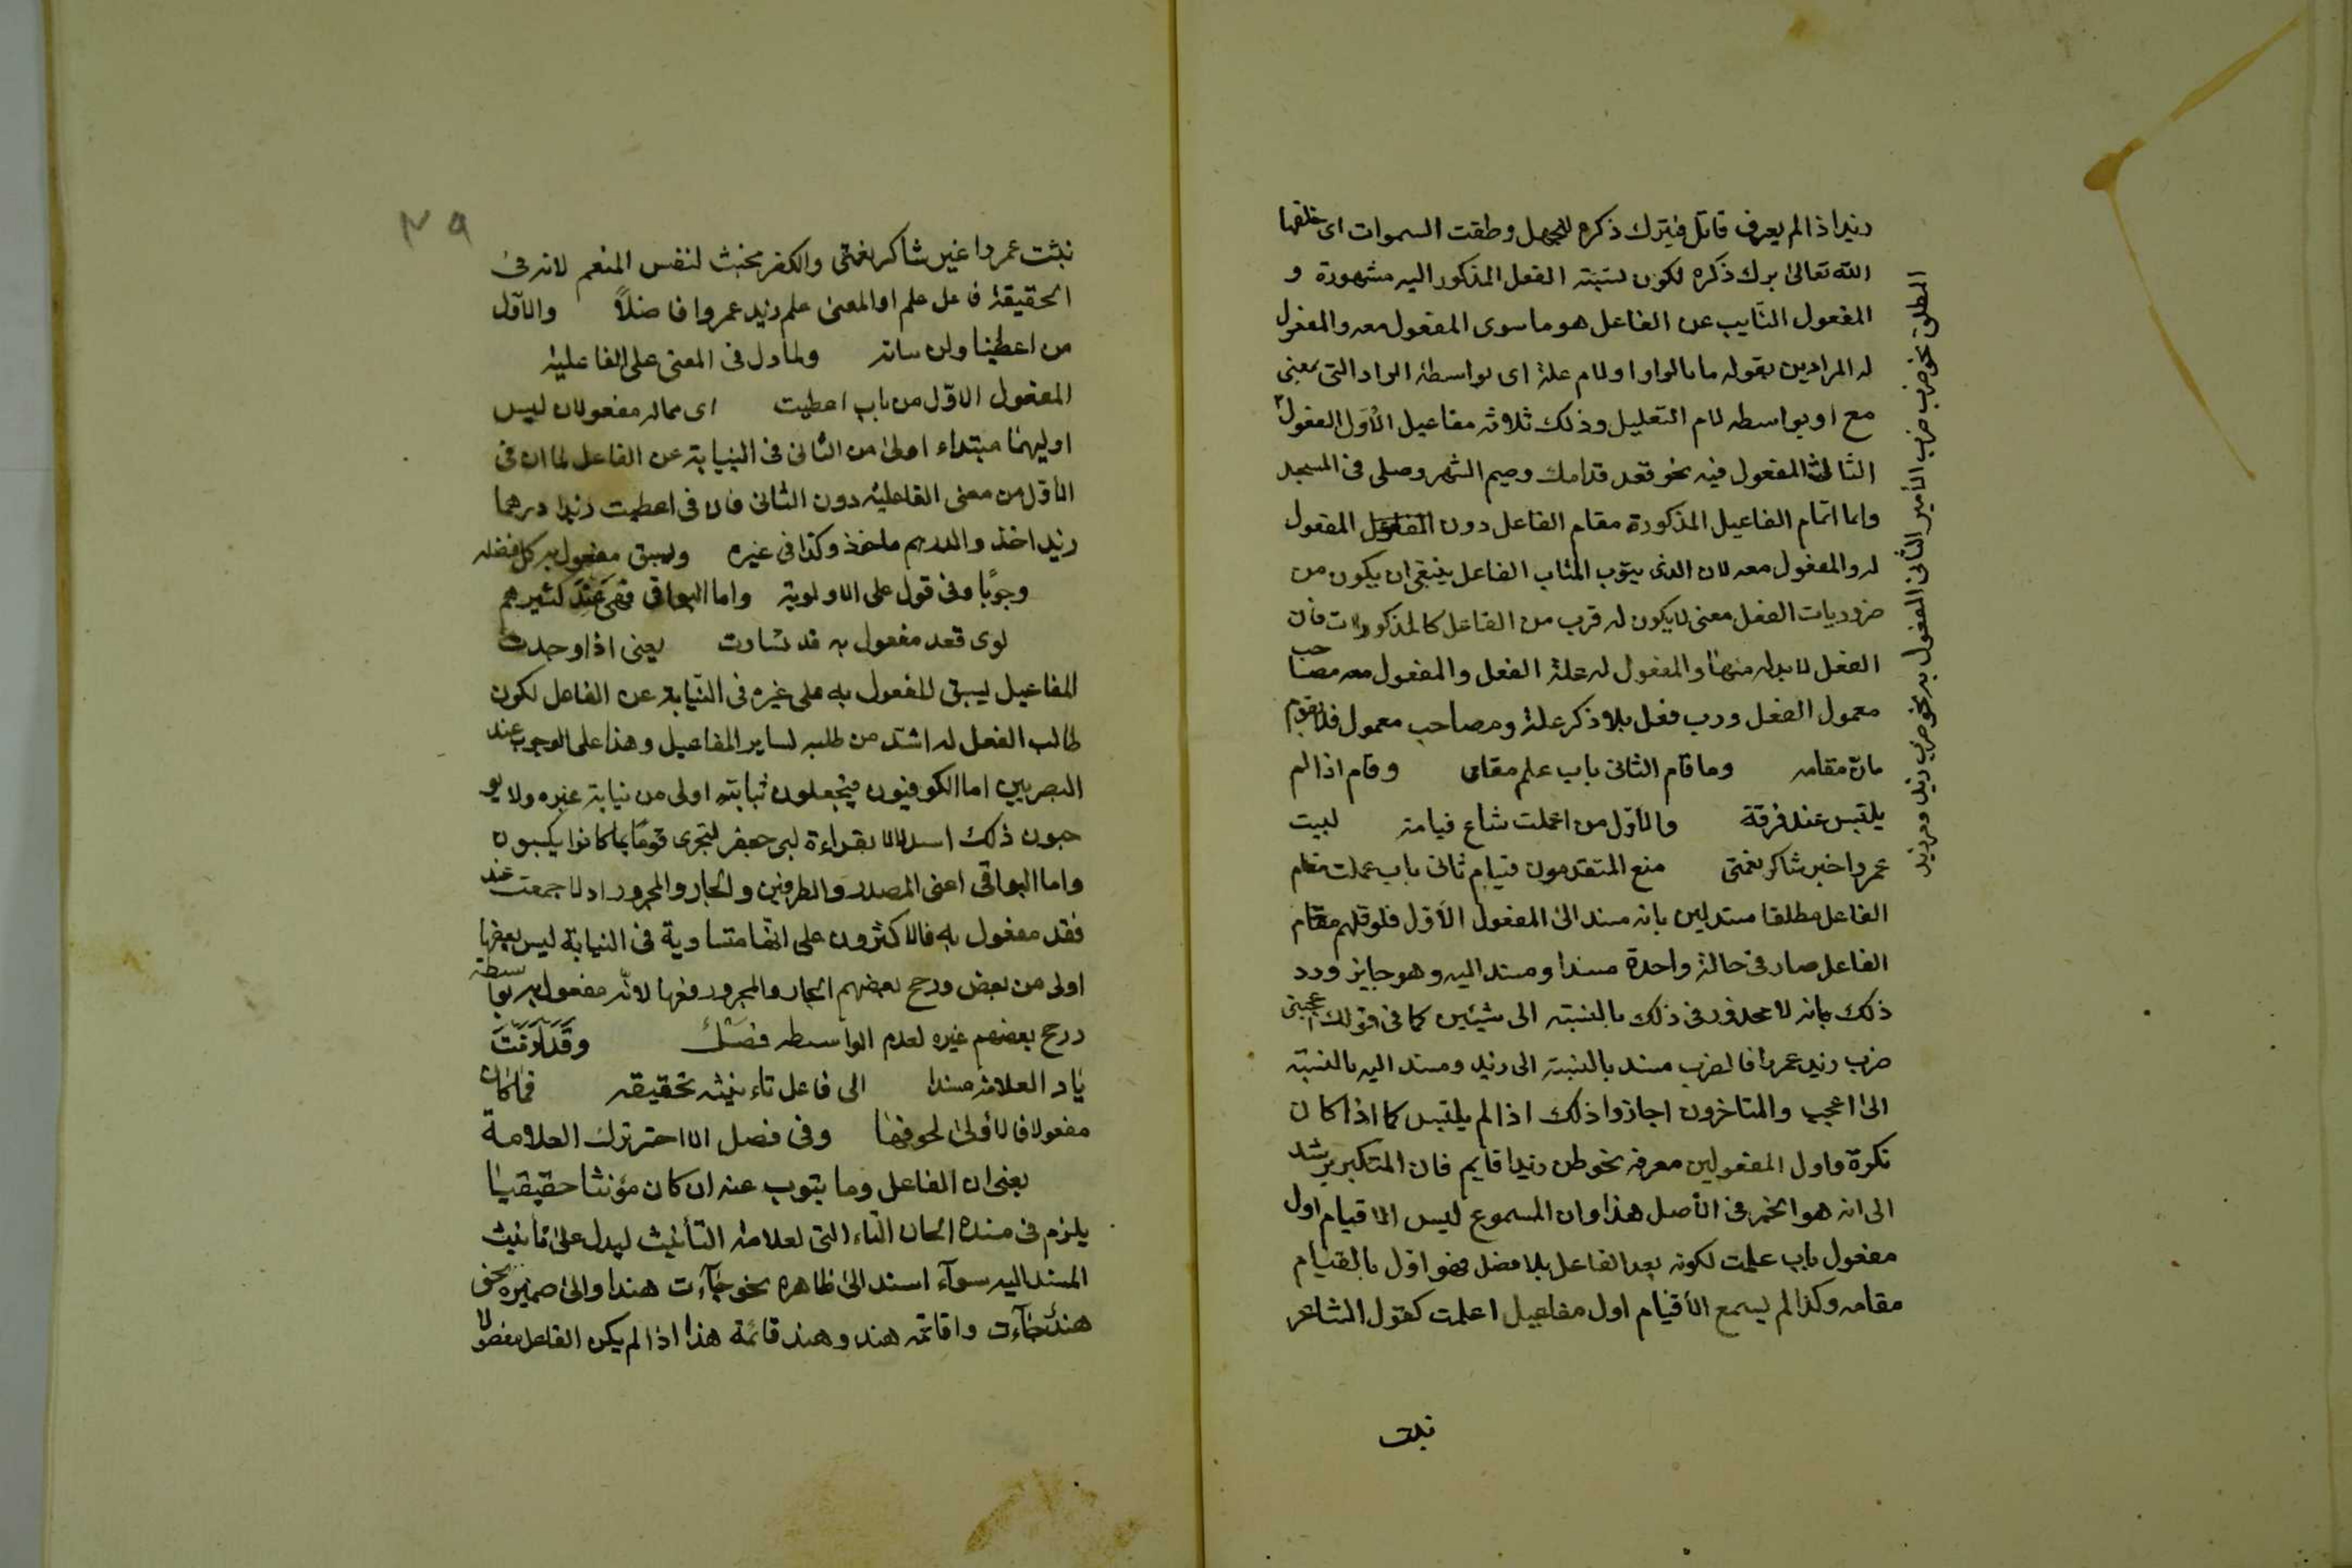 زيدا اذا لم يعرف قاتل فيترك ذكره للجهل وطقت السموات اى خلقها
الله تعالى برك ذكره لكون نسبته الفعل المذكور اليه مشهورة و
المفعول النايب عن الفاعل هو ما سوى المفعول معه والمفعول
له المرادين بقوله ما بالواو او لام علة اى بواسطة الواو التى بمعنى
مع او بواسطه لام التعليل وذلك ثلاثه مفاعيل الأول المفعول
المطلق نحو ضرب ضرب الأمير الثانى المفعول به نحو ضرب زيد ومر بزيد
الثالث المفعول فيه نحو قعد قدامك وصيم الشهر وصلى فى المسجد
وانما اتمام الفاعيل المذكورة مقام الفاعل دون المفعول
له والمفعول معه لان الذى ينوب المناب الفاعل ينبغى ان يكون من
ضروريات الفعل معنى ليكون له قرب من الفاعل كالمذكورات فان
الفعل لابد له منها والمفعول له علة الفعل والمفعول معه مصاحب
معمول الفعل ورب فعل بلا ذكر علة ومصاحب معمول فلا يقوم
مقامه وما قام الثانى باب علم مقاى وقام اذا لم
يلتبس عند فرقة والأول من اعملت شاع قيامه لبيت
عمروا خبر شاكر نعمتى منع المتقدمون قيام ثانى باب عملت مقام
الفاعل مطلقا مستدلين بانه مسند الى المفعول الأول فلو قلهم مقام
الفاعل صار فى حالة واحدة مسندا ومسند اليه وهو جايز ورد
ذلك بانه لا محذور فى ذلك بالنسبته الى شيئين كما فى قولك اعجبنى
ضرب زيد عمروا فالضرب مسند بالنسبته الى زيد ومسند اليه بالنسبته
الى اعجب والمتاخرون اجازوا ذلك اذا لم يلتبس كما اذا كان
نكرة واول المفعولين معرفه نحو ظن زيدا قايم فان المتكبر يرشد
الى انه هو الخبر فى الأصل هذا وان المسموع ليس الا قيام اول
مفعول باب علمت لكونه بعد الفاعل بلا فصل فهو اول بالقيام
مقامه وكذا لم يسمع الأقيام اول مفاعيل اعلمت كقول الشاعر
نبئت
٢٩
نبئت عمروا غير شاكر نعمتى والكفر مخبث لنفس المنعم لانه فى
الحقيقة فاعل علم او المعنى علم زيد عمروا فاضلاً والأول
من اعطينا ولن ساته ولما دل فى المعنى على الفاعلية
المفعول الاول من باب اعطيت اى مماله مفعولان ليس
اوليهما مبتداء اولى من الثانى فى النيابة عن الفاعل لما ان فى
الأول من معنى الفاعليه دون الثانى فان فى اعطيت زيدا درهما
زيد اخذ والدرهم ماخوذ وكذا فى غيره وليسبق مفعول به كل فضله
وجوبًا وفى قول على الاولوية واما البواقى فهى عند كثيرهم
لوى فقد مفعول به قد تساوت يعنى اذا وجدت
المفاعيل ليسبق المفعول به على غيره فى النيابة عن الفاعل لكون
طالب الفعل له اشد من طلبه لساير المفاعيل وهذا على الوجوب عند
البصريين اما الكوفيون فيجعلون نيابته اولى من نيابة غيره ولا يو
جبون ذلك استدلالا بقراءة لبى جعفر ليجرى قوما بما كانوا يكسبون
واما البواقى اعنى المصدر والظرفين والجار والمجرور اذا جمعت عند
فقد مفعول به فالاكثرون على انها متساوية فى النيابة ليس بعضها
اولى من بعض ورجح بعضهم الجار والمجرور منها لانه مفعول به بواسطه
ورجح بعضهم غيره لعدم الواسطه فصل وقد اردفت
ياد العلامه مسندا الى فاعل تاءنيثه تحقيقه فما كان
مفعولا فالأولى لحوقها وفى فصل الاحتر ترك العلامة
يعنى ان الفاعل وما ينوب عنه ان كان مؤنثا حقيقيا
يلزم فى مسنده الحان التاء التى لعلامة التأنيث ليدل على تأنيث
المسند اليه سوآء اسند الى ظاهره نحو جآءت هند او الى ضميره نحو
هند جآءت واقائمه هند وهند قائمة هذا اذا لم يكن الفاعل مفصولا